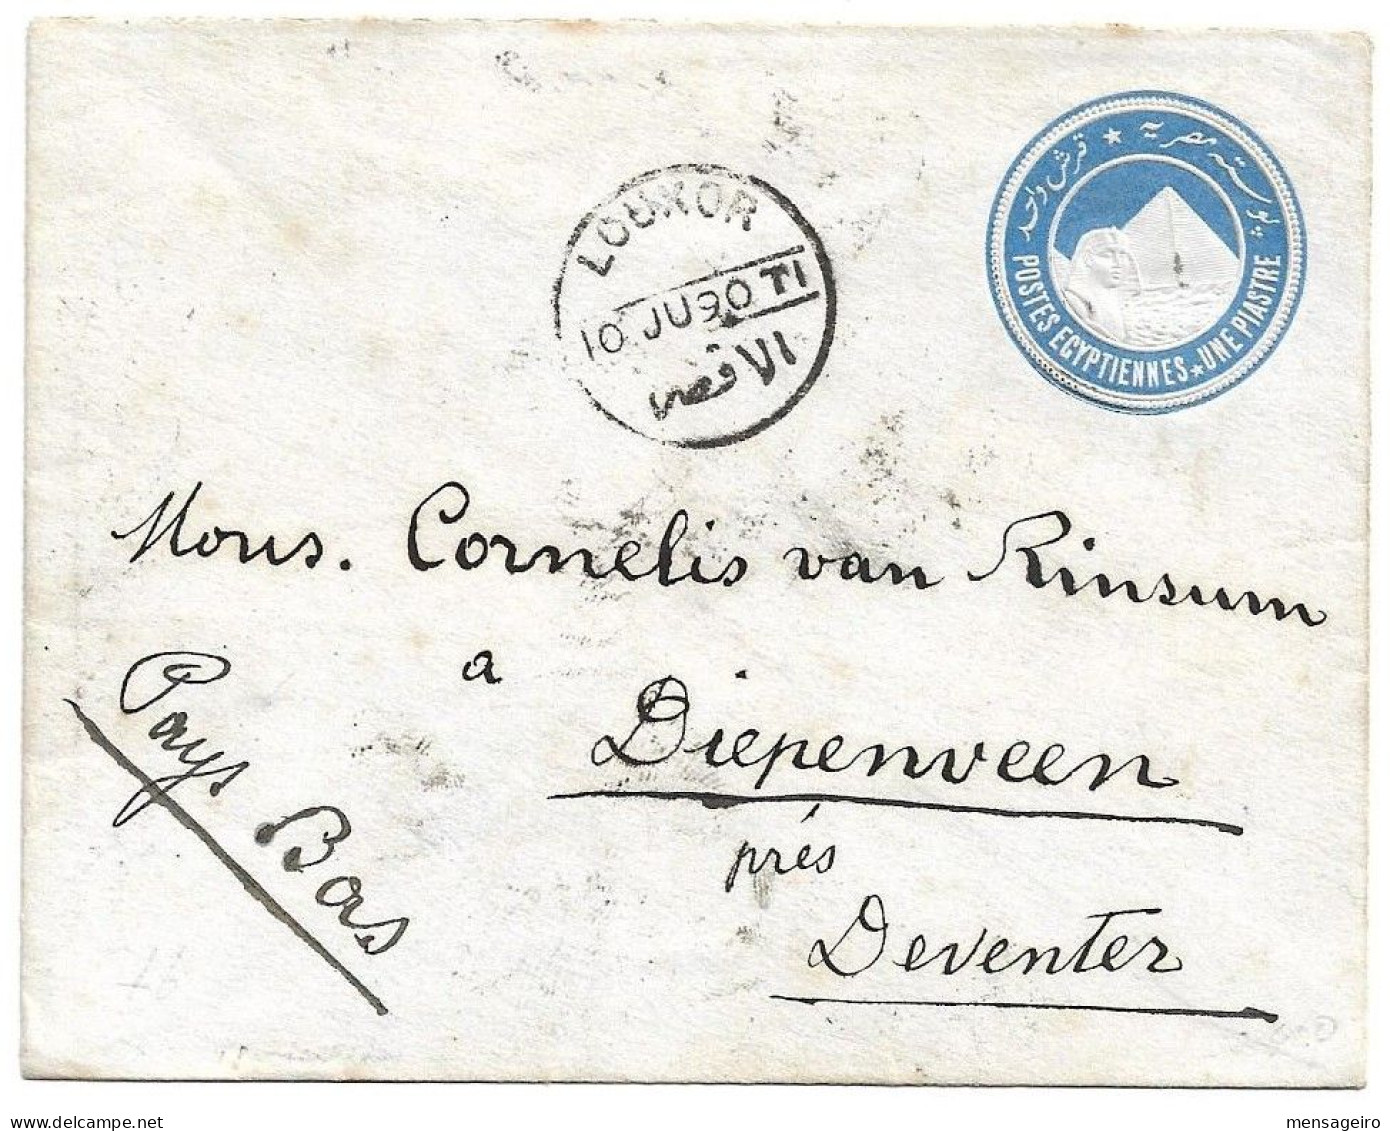 بوسته مصرية ★ قرش واحد
POSTES EGYPTIENNES ★ UNE PIASTRE
LOUXOR
10 JU 90 TI
الاقصر
Mons. Cornelis van Rinsum
a
Diepenveen
prés
Deventer
Pays Bas
delcampe.net
mensageiro